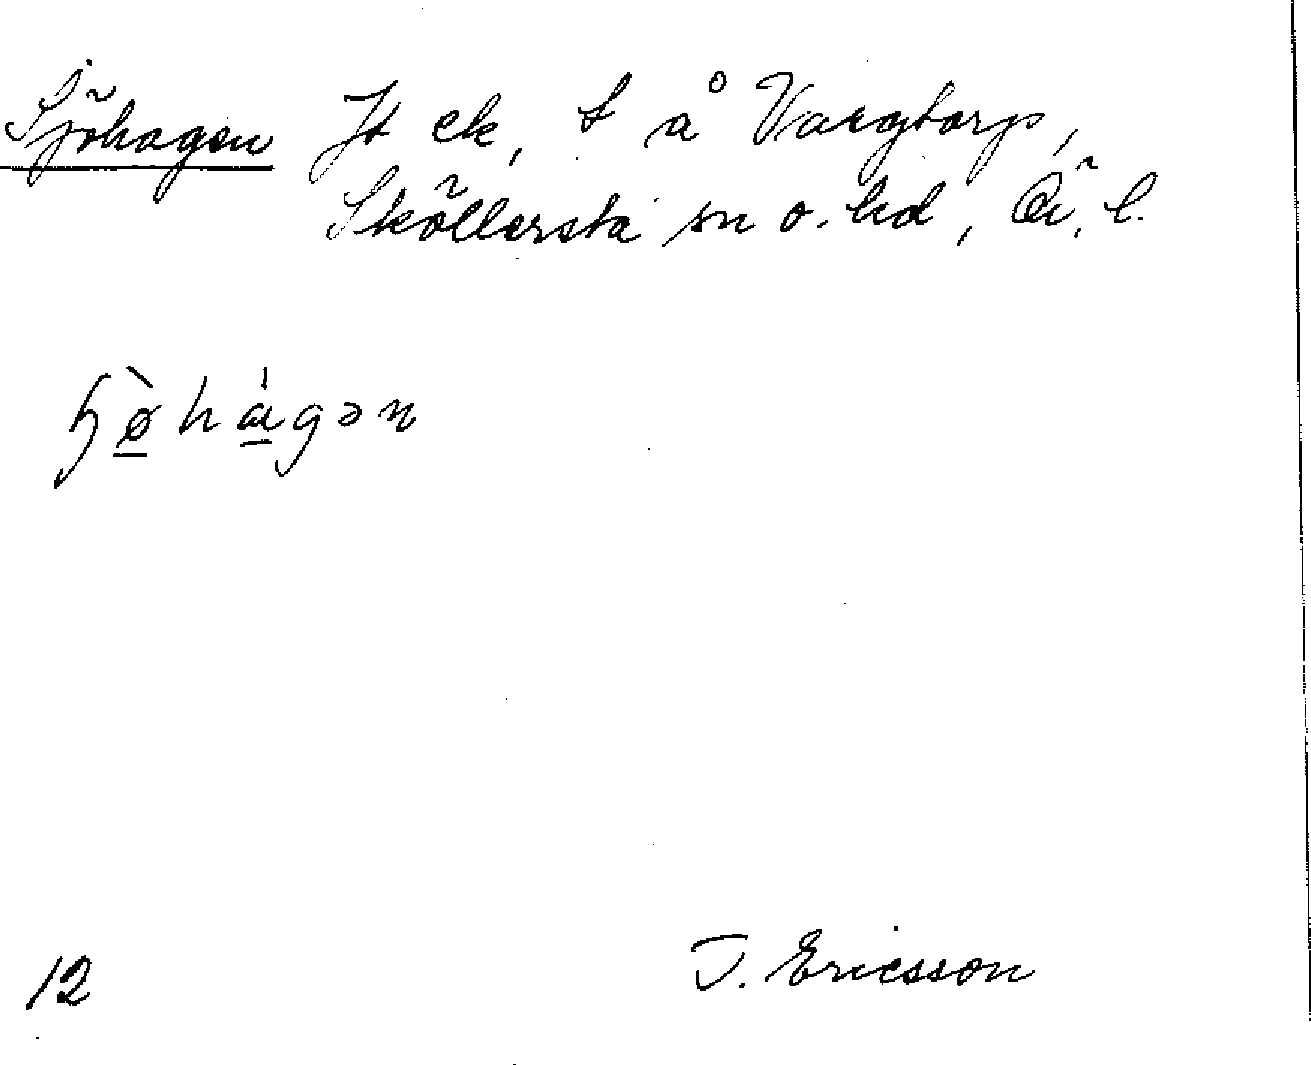 Sjöhagen Jb ek, t å Vargtorp,
Sköllersta sn o. hd, Ö. l.
ɧø̱̀há̱gən
12 T. Ericsson